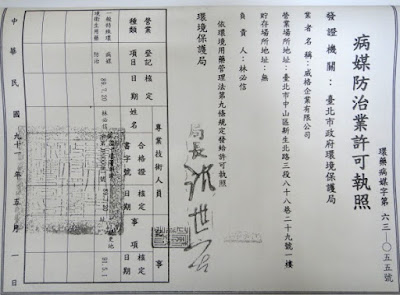 病媒防治業許可執照
環藥病媒字第六三-〇五五號
發證機關：臺北市政府環境保護局
業者名稱：威格企業有限公司
營業場所地址：臺北市中山區新生北路三段八十八巷二十九號一樓
貯存場所地址：無
負責人：林必信
依環境用藥管理法第九條規定發給許可執照
環境保護局
局長
營業種類
登記項目
核定日期
專業技術人員
姓名
合格證書字號
核定日期
事項
核定日期
一般環境衛生用藥
病媒防治
林必信
中華民國九十一年五月一日